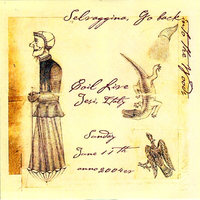 Selvaggina, Go back
into the Woods
Evil Live
Jesi, Italy
Sunday
June 11th
anno 2004ev